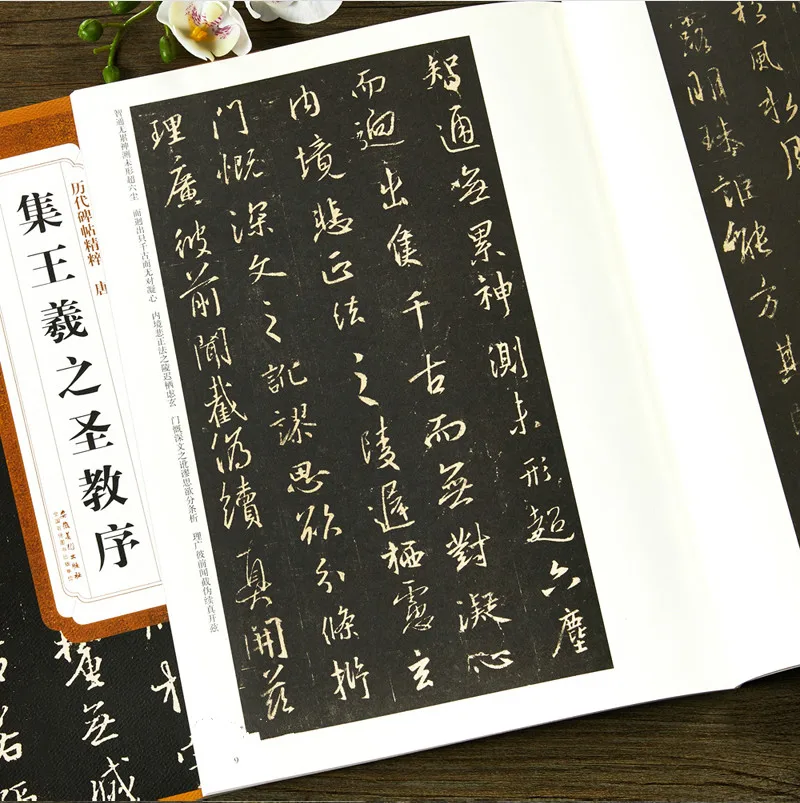 松風水月
露明珠詎能方其
智通無累神測未形超六塵
而迥出隻千古而無對凝心
内境悲正法之陵遲栖慮玄
門慨深文之訛謬思欲分條析
理廣彼前聞截偽續真開茲
智通无累神测未形超六尘 而迥出只千古而无对凝心 内境悲正法之陵迟栖虑玄 门慨深文之讹谬思欲分条析 理广彼前闻截伪续真开兹
9
历代碑帖精粹 唐
集王羲之圣教序
安徽美术出版社